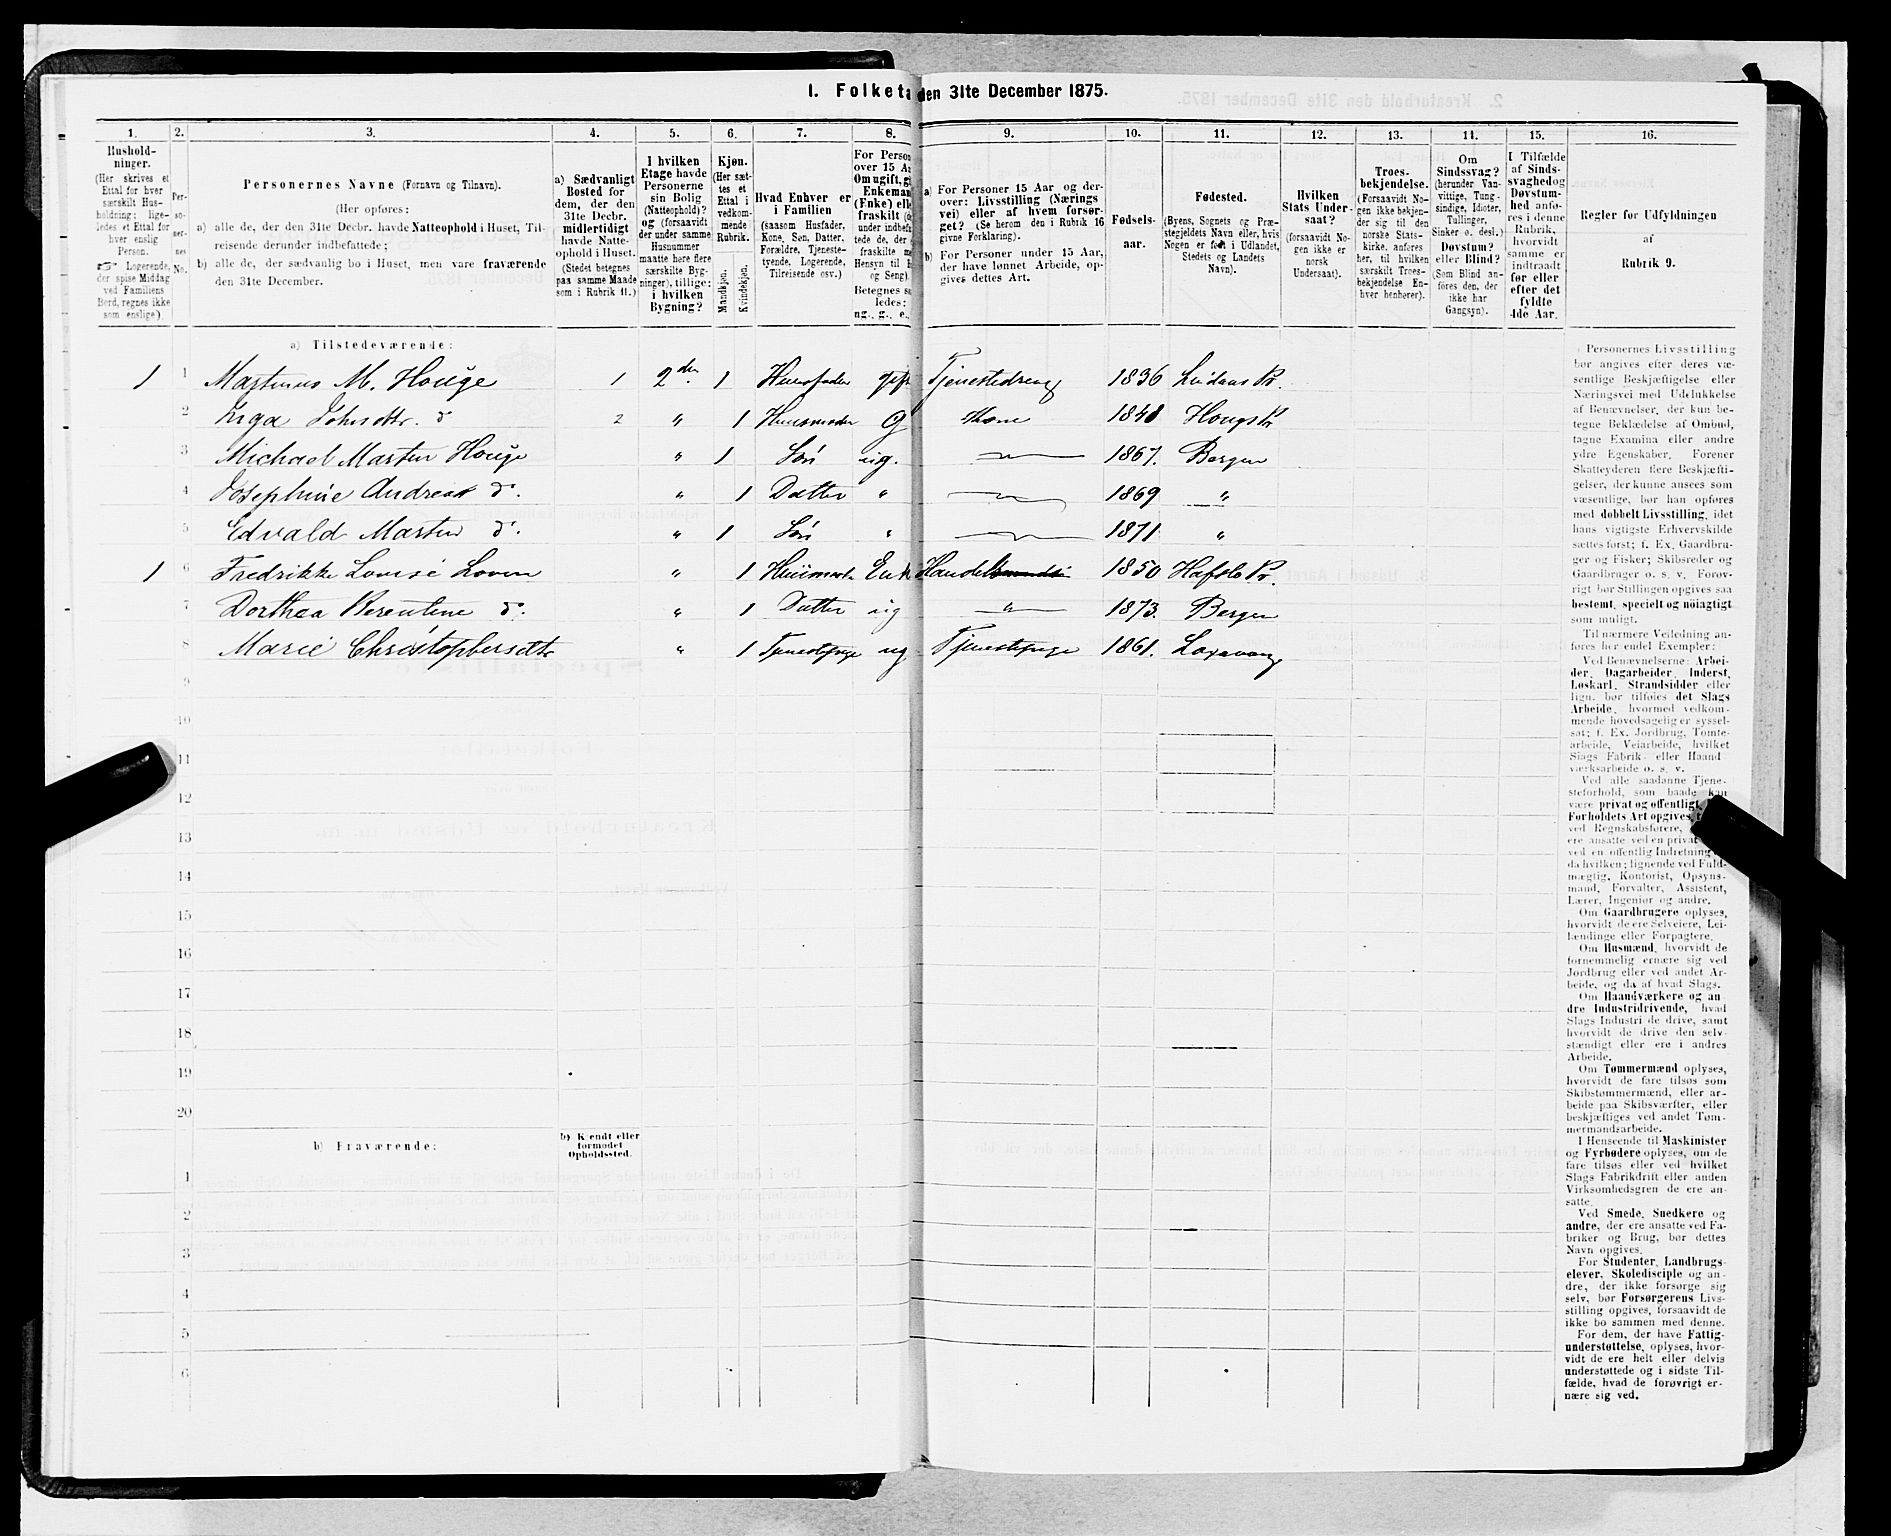 1. Folketæ den 31te December 1875.
1. 2. 3. 4. 5. 6. 7. 8. 9. 10. 11. 12. 13. 14. 15. 16.
Hushold-
ninger.
(Her skrives et
Ettal for hver
særskilt Hus-
holdning; lige-
ledes et Ettal for
hver enslig
Person.
☞ Logerende,
der spise Middag
ved Familiens
Bord, regnes ikke
som enslige).
Per-
so-
ner-
nes
No.
Personernes Navne (Fornavn og Tilnavn).
(Her opføres:
a) alle de, der den 31te Decbr. havde Natteophold i Huset, Til-
reisende derunder indbefattede;
b) alle de, der sædvanlig bo i Huset, men vare fraværende
den 31te December.
a) Sædvanligt
Bosted for
dem, der den
31te Decbr.
midlertidigt
havde Natte-
ophold i Huset.
(Stedet betegnes
paa samme Maade
som i Rubrik 11.)
I hvilken
Etage havde
Personerne
sin Bolig
(Natteophold)?
og (forsaavidt
der under samme
Husnummer
maatte høre flere
særskilte Byg-
ninger), tillige:
i hvilken
Bygning?
Kjøn.
(Her sæt-
tes et
Ettal i
vedkom-
mende
Rubrik.
Mandkjøn.
Kvindekjøn.
Hvad Enhver er
i Familien
(saasom Husfader,
Kone, Søn, Datter,
Forældre, Tjeneste-
tyende, Logerende,
Tilreisende osv.)
For Person
over 15 Aa
Om ugift, gi
Enkeman
(Enke) elle
fraskilt (d
under indbefa
tede de, der
fraskilte me
Hensyn til B
og Seng).
Betegnes sa
ledes:
ug., g., e.,
a) For Personer 15 Aar og der-
over: Livsstilling (Nærings
vei) eller af hvem forsør-
get? (Se herom den i Rubrik 16
givne Forklaring).
b) For Personer under 15 Aar,
der have lønnet Arbeide, op-
gives dettes Art.
Fødsels-
aar.
Fødested.
(Byens, Sognets og Præ-
stegjeldets Navn eller, hvis
Nogen er født i Udlandet,
Stedets og Landets
Navn).
Hvilken
Stats Under-
saat?
(forsaavidt No-
gen ikke er
norsk
Undersaat).
Troes-
bekjendelse.
(Forsaavidt No-
gen ikke bekjen-
der sig til den
norske Stats-
kirke, anføres
her, til hvilken
særskilt Troes-
bekjendelse En-
hver henhører).
Om
Sindssvag?
(herunder Van-
vittige, Tung-
sindige, Idioter,
Tullinger,
Sinker o. desl.)
Døvstum?
eller Blind?
(Som Blind an-
føres den, der
ikke har
Gangsyn).
I Tilfælde
af Sinds-
svaghed og
Døvstum-
hed anfø-
res i denne
Rubrik,
hvorvidt
samme er
indtraadt
før eller
efter det
fyldte
4de Aar.
Regler for Udfyldningen
af
Rubrik 9.
a) Tilstedeværende:
1 1 Martinus M. Houge 1 2den 1 Huusfader gift Tjenestedreng 1836 Lindaas Pr.
2 Inga Johnsdttr. do 2 " 1 Huusmoder G Kone 1848 Hougs Pr
3 Michael Martin Houge " 1 Søn ug. 1867. Bergen
4 Josephine Andrea do. " 1 Datter " 1869 "
5 Edvald Martin do. " 1 Søn " 1871 "
1 6 Fredrikke Lovise Loven " 1 Huusmoder Enk Handel 1850 Hafslo Pr.
7 Dorthea Berentine do. " 1 Datter ug " 1873. Bergen
8 Marie Christophersdtr " 1 Tjenestepige ug Tjenestepige 1861. Laxevaag
9
10
11
12
13
14
15
16
17
18
19
20
b) Fraværende:
b) Kjendt eller
formodet
Opholdssted.
1
2
3
4
5
6
Personernes Livsstilling
bør angives efter deres væ-
sentlige Beskjæftigelse eller
Næringsvei med Udelukkelse
af Benævnelser, der kun be-
tegne Beklædelse af Ombud,
tagne Examina eller andre
ydre Egenskaber. Forener
Skatteyderen flere Beskjæfti-
gelser, der kunne ansees som
væsentlige, bør han opføres
med dobbelt Livsstilling, idet
hans vigtigste Erhvervskilde
sættes først; f. Ex. Gaardbru-
ger og Fisker; Skibsreder og
Gaardbruger o. s. v. Forøv-
rigt bør Stillingen opgives saa
bestemt, specielt og nøiagtigt
som muligt.
Til nærmere Veiledning an-
føres her endel Exempler:
Ved Benævnelserne: Arbei-
der, Dagarbeider, Inderst,
Løskarl, Strandsidder eller
lign. bør tilføies det Slags
Arbeide, hvormed vedkom-
mende hovedsagelig er syssel-
sat; f. Ex. Jordbrug, Tomte-
arbeide, Veiarbeide, hvilket
Slags Fabrik- eller Haand-
værksarbeide o. s. v.
Ved alle saadanne Tjene-
steforhold, som baade kan
være privat og offentligt,
Forholdets Art opgives,
ved Regnskabsførere,
ere ansatte ved en privat
ved en offentlig Indretning
da hvilken; lignende ved Fuld-
mægtig, Kontorist, Opsyns-
mand, Forvalter, Assistent,
Lærer, Ingeniør og andre.
Om Gaardbrugere oplyses,
hvorvidt de ere Selveiere, Lei-
lændinge eller Forpagtere.
Om Husmænd, hvorvidt de
fornemmelig ernære sig ved
Jordbrug eller ved andet Ar-
beide, og da af hvad Slags.
Om Haandværkere og an
dre Industridrivende, hvad
Slags Industri de drive, samt
hvorvidt de drive den selv-
stændigt eller ere i andres
Arbeide.
Om Tømmermænd oplyses,
hvorvidt de fare tilsøs som
Skibstømmermænd, eller ar-
beide paa Skibsværfter, eller
beskjæftiges ved andet Tøm-
mermandsarbeide.
I Henseende til Maskinister
og Fyrbødere oplyses, om de
fare tilsøs eller ved hvilket
Slags Fabrikdrift eller anden
Virksomhedsgren de ere an-
satte.
Ved Smede, Snedkere og
andre, der ere ansatte ved Fa-
briker og Brug, bør dettes
Navn opgives.
For Studenter, Landbrugs-
elever, Skoledisciple og an-
dre, der ikke forsørge sig
selv, bør Forsørgerens Livs-
stilling opgives, forsaavidt de
ikke bo sammen med denne.
For dem, der have Fattig-
understøttelse, oplyses, hvor-
vidt de ere helt eller delvis
understøttede og i sidste Til-
fælde, hvad de forøvrigt er-
nære sig ved.